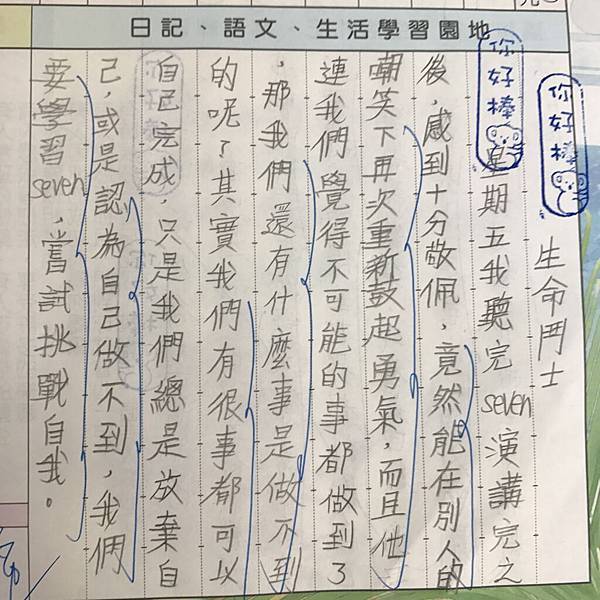 日記、語文、生活學習園地
你好棒
生命鬥士
你好棒
星期五我聽完seven演講完之
後,感到十分敬佩,竟然能在別人的
嘲笑下再次重新鼓起勇氣,而且他
連我們覺得不可能的事都做到了
,那我們還有什麼事是做不到
的呢?其實我們有很事都可以
自己完成,只是我們總是放棄自
己,或是認為自己做不到,我們
要學習seven,嘗試挑戰自我。